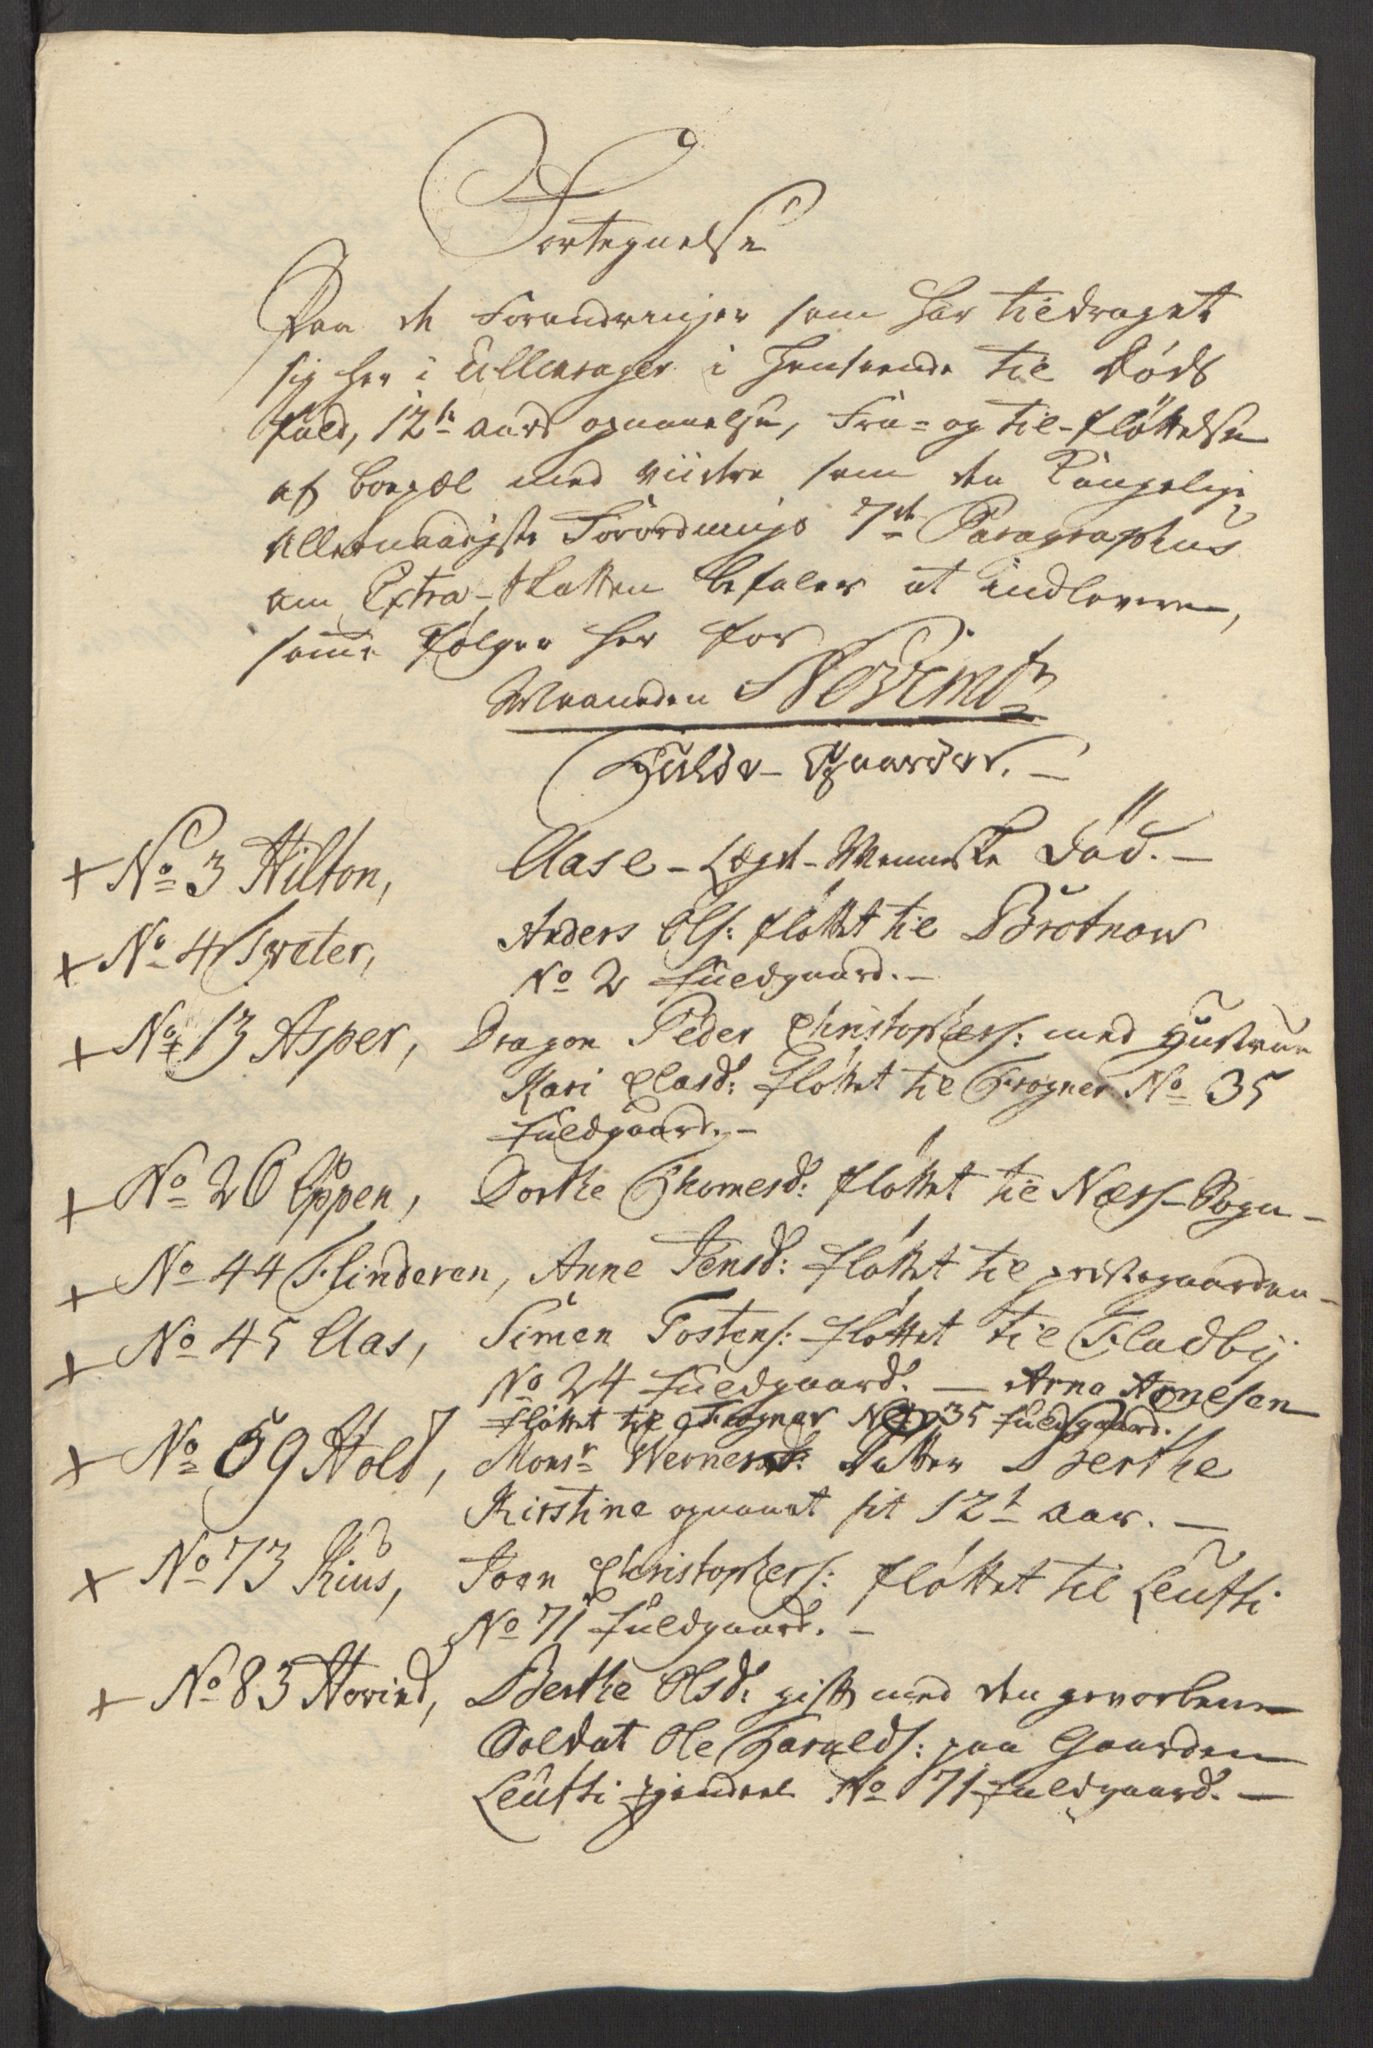 Fortegnelse
Paa de Forandringer som har tildraget
sig her i Ullensager i Henseende til Døds
fald, 12te aars opnaaelse, Fra- og til-fløttelse
af boepæl med viidere som den Kongelige
Allernaadigste Forordnings 7de Paragraphus
om Extra-Skatten befaler at indlevere,
samme følger her for
Maaneden Novembr
Fulde-Gaarder. —
+ No 3 Hilton, Aase - Lægds-Menneske død. —
+ No 4 Sreter, Anders Ols: fløttet til Brotnow
No 2 fuldgaard. —
+ No 13 Asper, Dragon Peder Christophers: med Hustrue
Kari Clasd: fløttet til Frogner No 35
fuldgaard. —
+ No 26 Eppen, Dorthe Thomesd: fløttet til Næss-Sogn —
+ No 44 Flinderen, Anne Jensd: fløttet til præstegaarden —
+ No 45 Aas, Simen Tostens: fløttet til Fladbÿ
No 24 fuldgaard. — Arne Arnesen
fløttet til Frogner No 35 fuldgaard.
+ No 59 Hold, Monsr Werners: datter Berthe
Kirstine opnaaet sit 12te aar. —
+ No 73 Kius, Joen Christophers: fløttet til Leufsi
No 71 fuldgaard. —
+ No 83 Hovind, Berthe Olsd: gift med den gevorbene
Soldat Ole Haralds: paa Gaarden
Leufsi No 71 fuldgaard. —